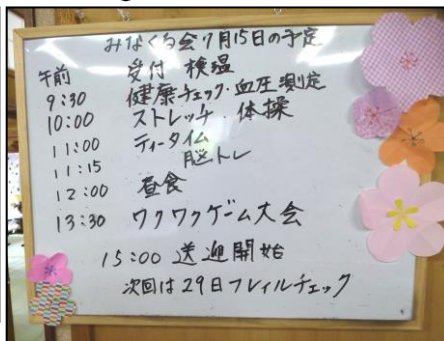 みなくる会7月15日の予定
午前 受付 検温
9:30 健康チェック・血圧測定
10:00 ストレッチ 体操
11:00 ティータイム
11:15 脳トレ
12:00 昼食
13:30 ワクワクゲーム大会
15:00 送迎開始
次回は29日フレイルチェック